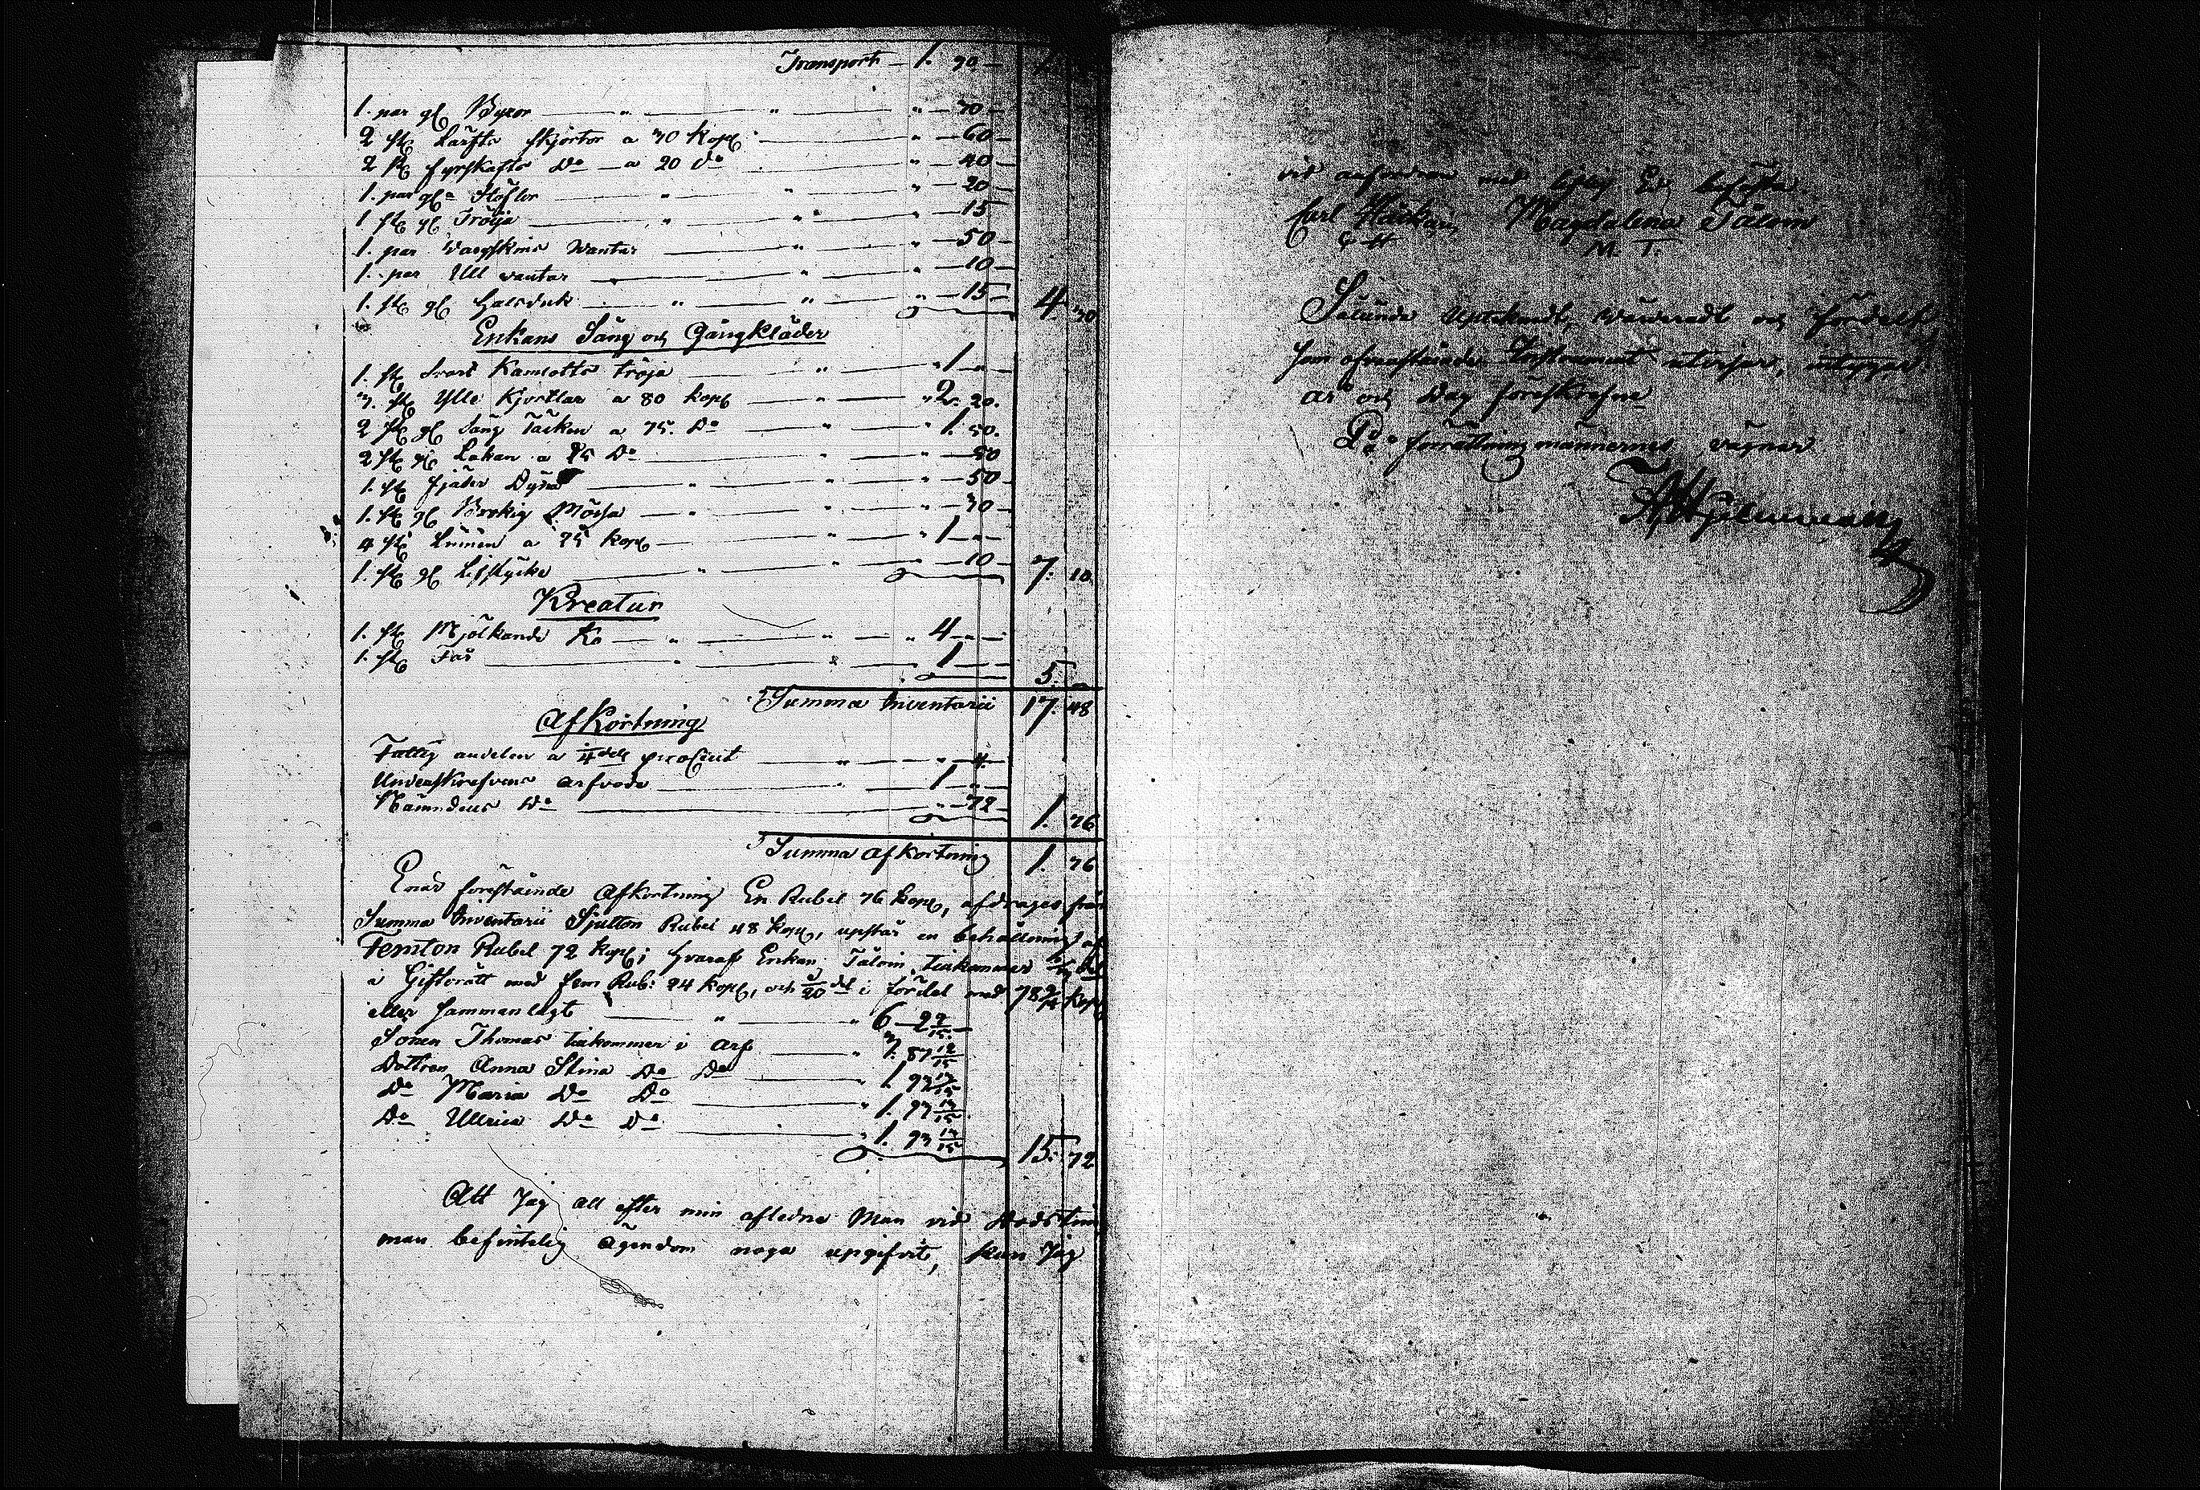 Transport — 1. 90 —
1. par gl Byxor — " — " — " — 30 —
2 st Lärfts skjortor a 30 kop — " — 60 —
2 st fyrskafts Do — a 20 do — " — 40 —
1. par gla Stöflor — " — " — 20 —
1 st gl Tröija — " — " — " — 15
1. par Vargskins Vantar — " — " — 50 —
1. par Ull vantar — " — " — 10 —
1. st gl Halsduk — " — " — " — 15 — 4 30
Enkans Säng och Gångkläder
1. st Svart Kamlotts tröja — " — " 1 — " —
3. st Ylle Kjortlar a 80 kop — " — " 2. 20.
2 st gl Säng Täcken a 75. Do — " — " 1. 50.
2 st gl Lakan a 25 Do — " — " — 50
1. st fjäder Dyna — " — " — " — 50 —
1. st gl Brokig Mössa — " — " — " — 30 —
4 st Linnen a 25 kop — " — " 1 — " —
1. st gl Lifstycke — " — " — 10 — 7. 10.
Kreatur
1. st Mjölkande Ko — " — " — " 4 — " —
1. st Får — " — " — 1 — 5. "
Summa Inventarii 17. 48
Afkortning
Fattig andelen a 1/4dels procent — " — " — 4. —
Underskrefvens arfvode — " — " 1 — " —
Nämndens Do — " — 72 — 1. 76
Summa Afkortning 1. 76
Enär förestående Afkortning En Rubel 76 kop, afdrages från
Summa Inventarii Sjutton Rubel 48 kop, upstår en behållning af
Femton Rubel 72 kop; hvaraf Enkan Talvin tilkommer 1/3 del
i Giftorätt med fem Rub: 24 kop, och 1/20 del i fördel med 78 9/15 kop
eller sammanlagt — " — " 6 — 2 9/15 —
Sonen Thomas tilkommer i arf — " 3. 87 12/15
Dottren Anna Stina Do Do — " 1. 93 13/15
Do Maria Do Do — " 1. 93 13/15
Do Ullrica Do Do — " 1. 93 13/15 15. 72
Att Jag all efter min afledne Man vid dödstim
man befintelig ägendom noga upgifvit, kan Jag
vid anfordran med liflig Ed befästa
Carl Magdalena Talvin
C H M. T.
Sålunda Upteknadt, värderadt och fördelt,
som ofvanstående Instrument utvisar,
år och Dag föreskrefne
På förrättningsmännernes vägnar